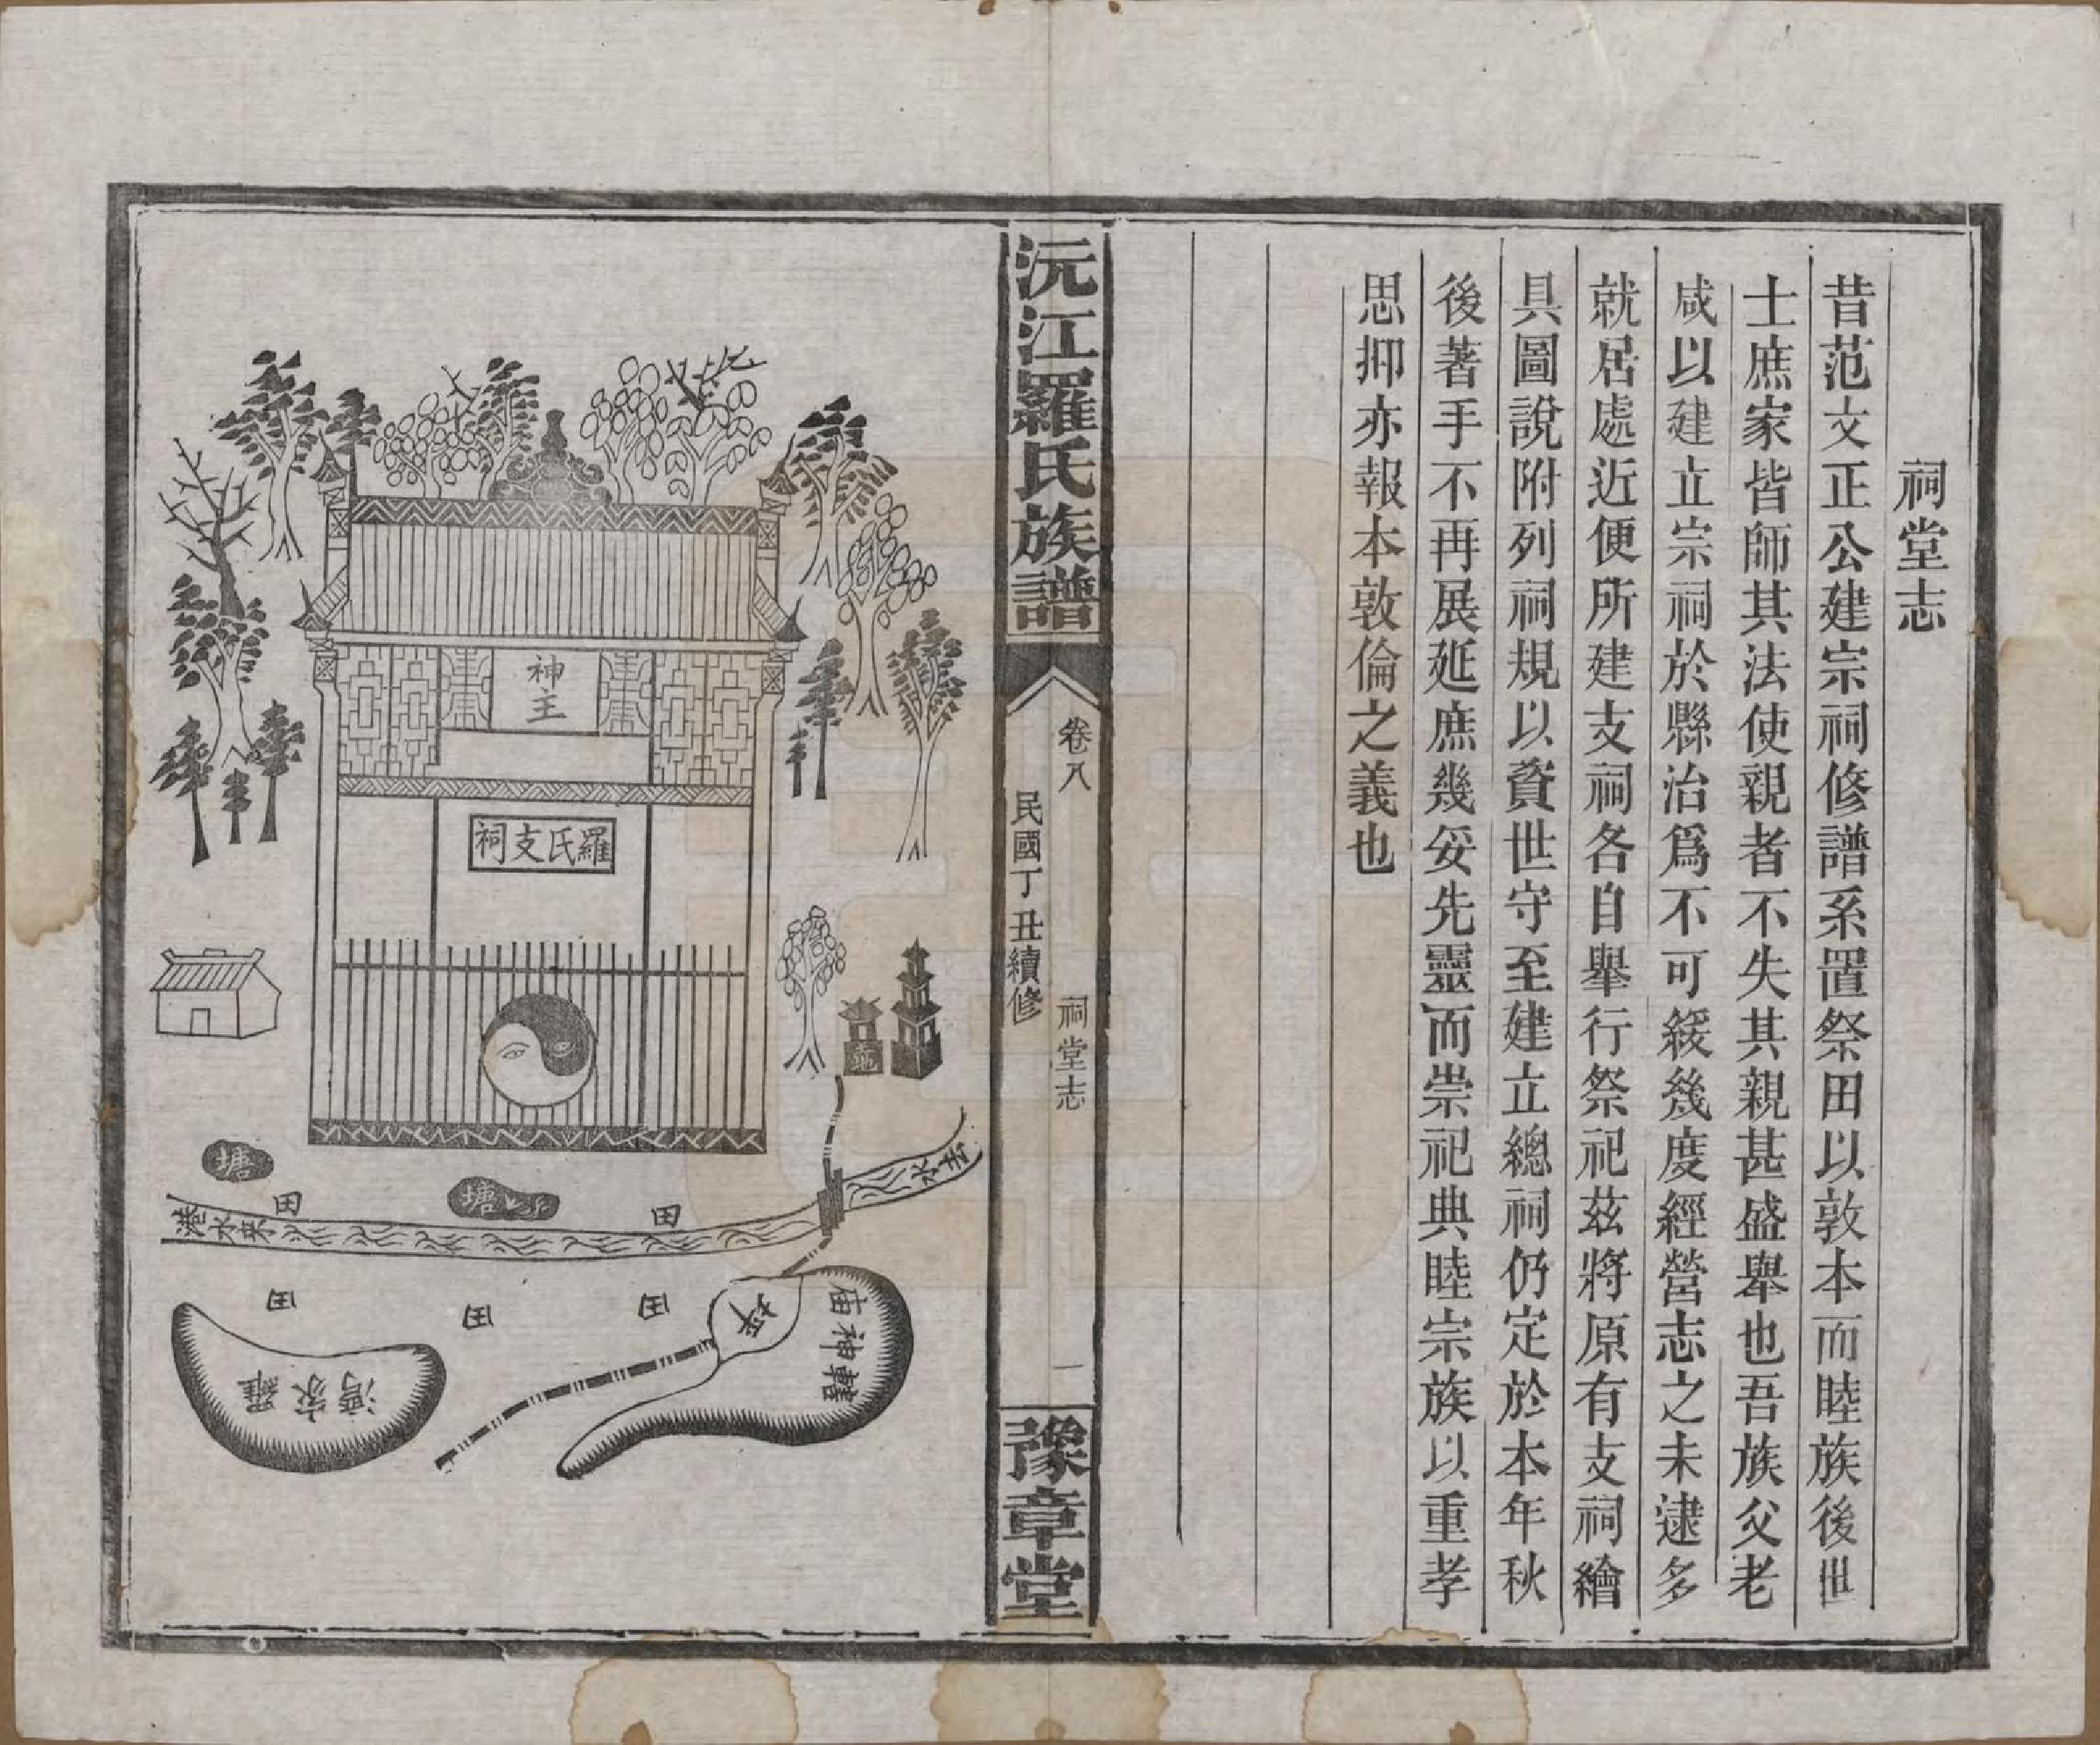 祠堂志
昔范文正公建宗祠修譜系置祭田以敦本而睦族後世
士庶家皆師其法使親者不失其親甚盛舉也吾族父老
咸以建立宗祠於縣治爲不可緩幾度經營志之未逮多
就居處近便所建支祠各自舉行祭祀茲將原有支祠繪
具圖說附列祠規以資世守至建立總祠仍定於本年秋
後著手不再展延庶幾妥先靈而崇祀典睦宗族以重孝
思抑亦報本敦倫之義也
沅江羅氏族譜
卷八
祠堂志
一
民國丁丑續修
豫章堂
神主
羅氏支祠
塘
塘
田
田
港水來
水去
田
田
田
坪
轄神庙
羅家灣